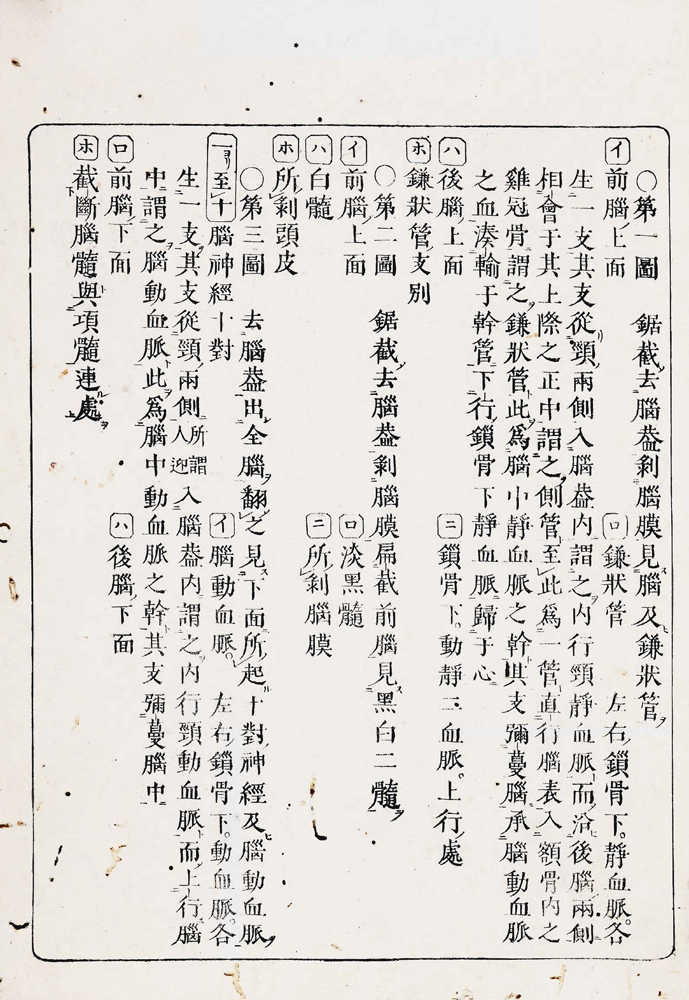 ○第一圖　鋸截去腦葢剝腦膜見腦及鎌狀管
イ前腦上面　ロ鎌狀管　左右鎖骨下靜血脈各
生一支其支從頸兩側入腦葢内謂之内行頸靜血脈而沿後腦兩側
相會于其上際之正中謂之側管至此爲一管直行腦表入額骨内之
雞冠骨謂之鎌狀管此爲腦中靜血脈之幹其支彌蔓腦承腦動血脈
之血湊輸于幹管下行鎖骨下靜血脈歸于心
ハ後腦上面　ニ鎖骨下動靜二血脈上行處
ホ鎌狀管支別
○第二圖　鋸截去腦葢剝腦膜扁截前腦見黑白二髓
イ前腦上面　ロ淡黑髓
ハ白髓　ニ所剝腦膜
ホ所剝頭皮
○第三圖　去腦葢出全腦翻之見下面所起十對神經及腦動血脈
一ヨリ至十腦神經十對　イ腦動血脈　左右鎖骨下動血脈各
生一支其支從頸兩側所謂人迎入腦葢内謂之内行頸動血脈而上行腦
中謂之腦動血脈此爲腦中動血脈之幹其支彌蔓腦中
ロ前腦下面　ハ後腦下面
ホ截斷腦髓與項髓連處